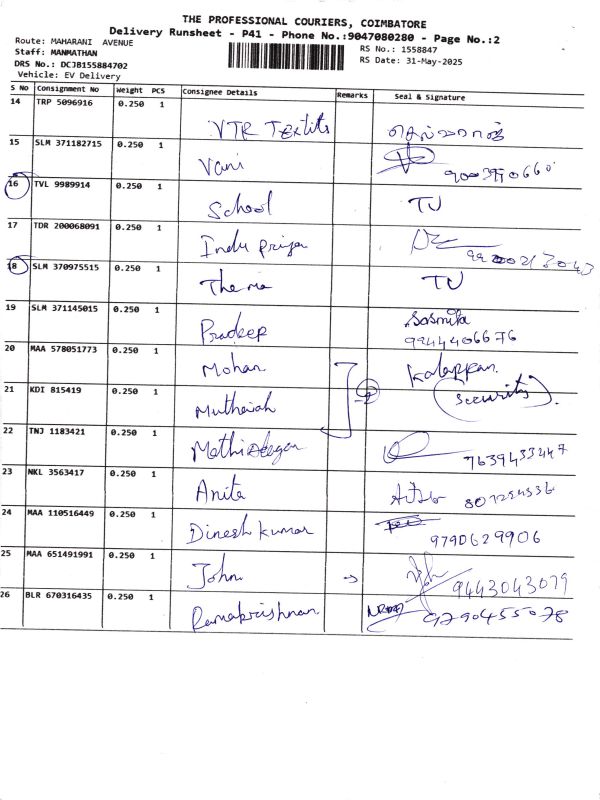 THE PROFESSIONAL COURIERS, COIMBATORE
Delivery Runsheet - P41 - Phone No.:9047080280 - Page No.:2
Route: MAHARANI AVENUE
Staff: MANMATHAN
RS No.: 1558847
DRS No.: DCJB155884702
RS Date: 31-May-2025
Vehicle: EV Delivery
S No Consignment No Weight PCS Consignee Details Remarks Seal & Signature
14 TRP 5096916 0.250 1 VTR Textiles செல்வராஜ்
15 SLM 371182715 0.250 1 Vani
16 TVL 9989914 0.250 1 School TU
17 TDR 200068091 0.250 1 Indu Priya
18 SLM 370975515 0.250 1 TU
19 SLM 371145015 0.250 1 Pradeep Sasmita
9944406676
20 MAA 578051773 0.250 1 Mohan Kalappan
21 KDI 815419 0.250 1 Muthaiah (Security)
22 TNJ 1183421 0.250 1 7639433447
23 NKL 3563417 0.250 1 Anita
24 MAA 110516449 0.250 1 Dinesh kumar 9790629906
25 MAA 651491991 0.250 1 John 9443043079
26 BLR 670316435 0.250 1 Ramakrishnan 9790455078